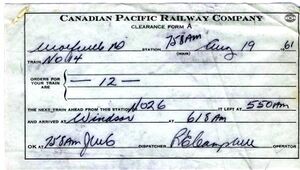 CANADIAN PACIFIC RAILWAY COMPANY
CLEARANCE FORM A
STATION, 758AM Aug 19 1961
TRAIN
No 14
ORDERS FOR YOUR TRAIN ARE — 12 —
THE NEXT TRAIN AHEAD FROM THIS STATION No 26 IT LEFT AT 550AM
AND ARRIVED AT Windsor AT 618AM
OK AT 758AM DISPATCHER OPERATOR